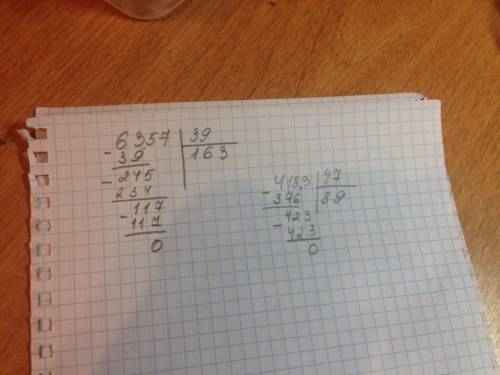 6357 | 39
- 39 | 163
- 245
234
- 117
117
0
- 4183 | 47
376 | 89
- 423
423
0